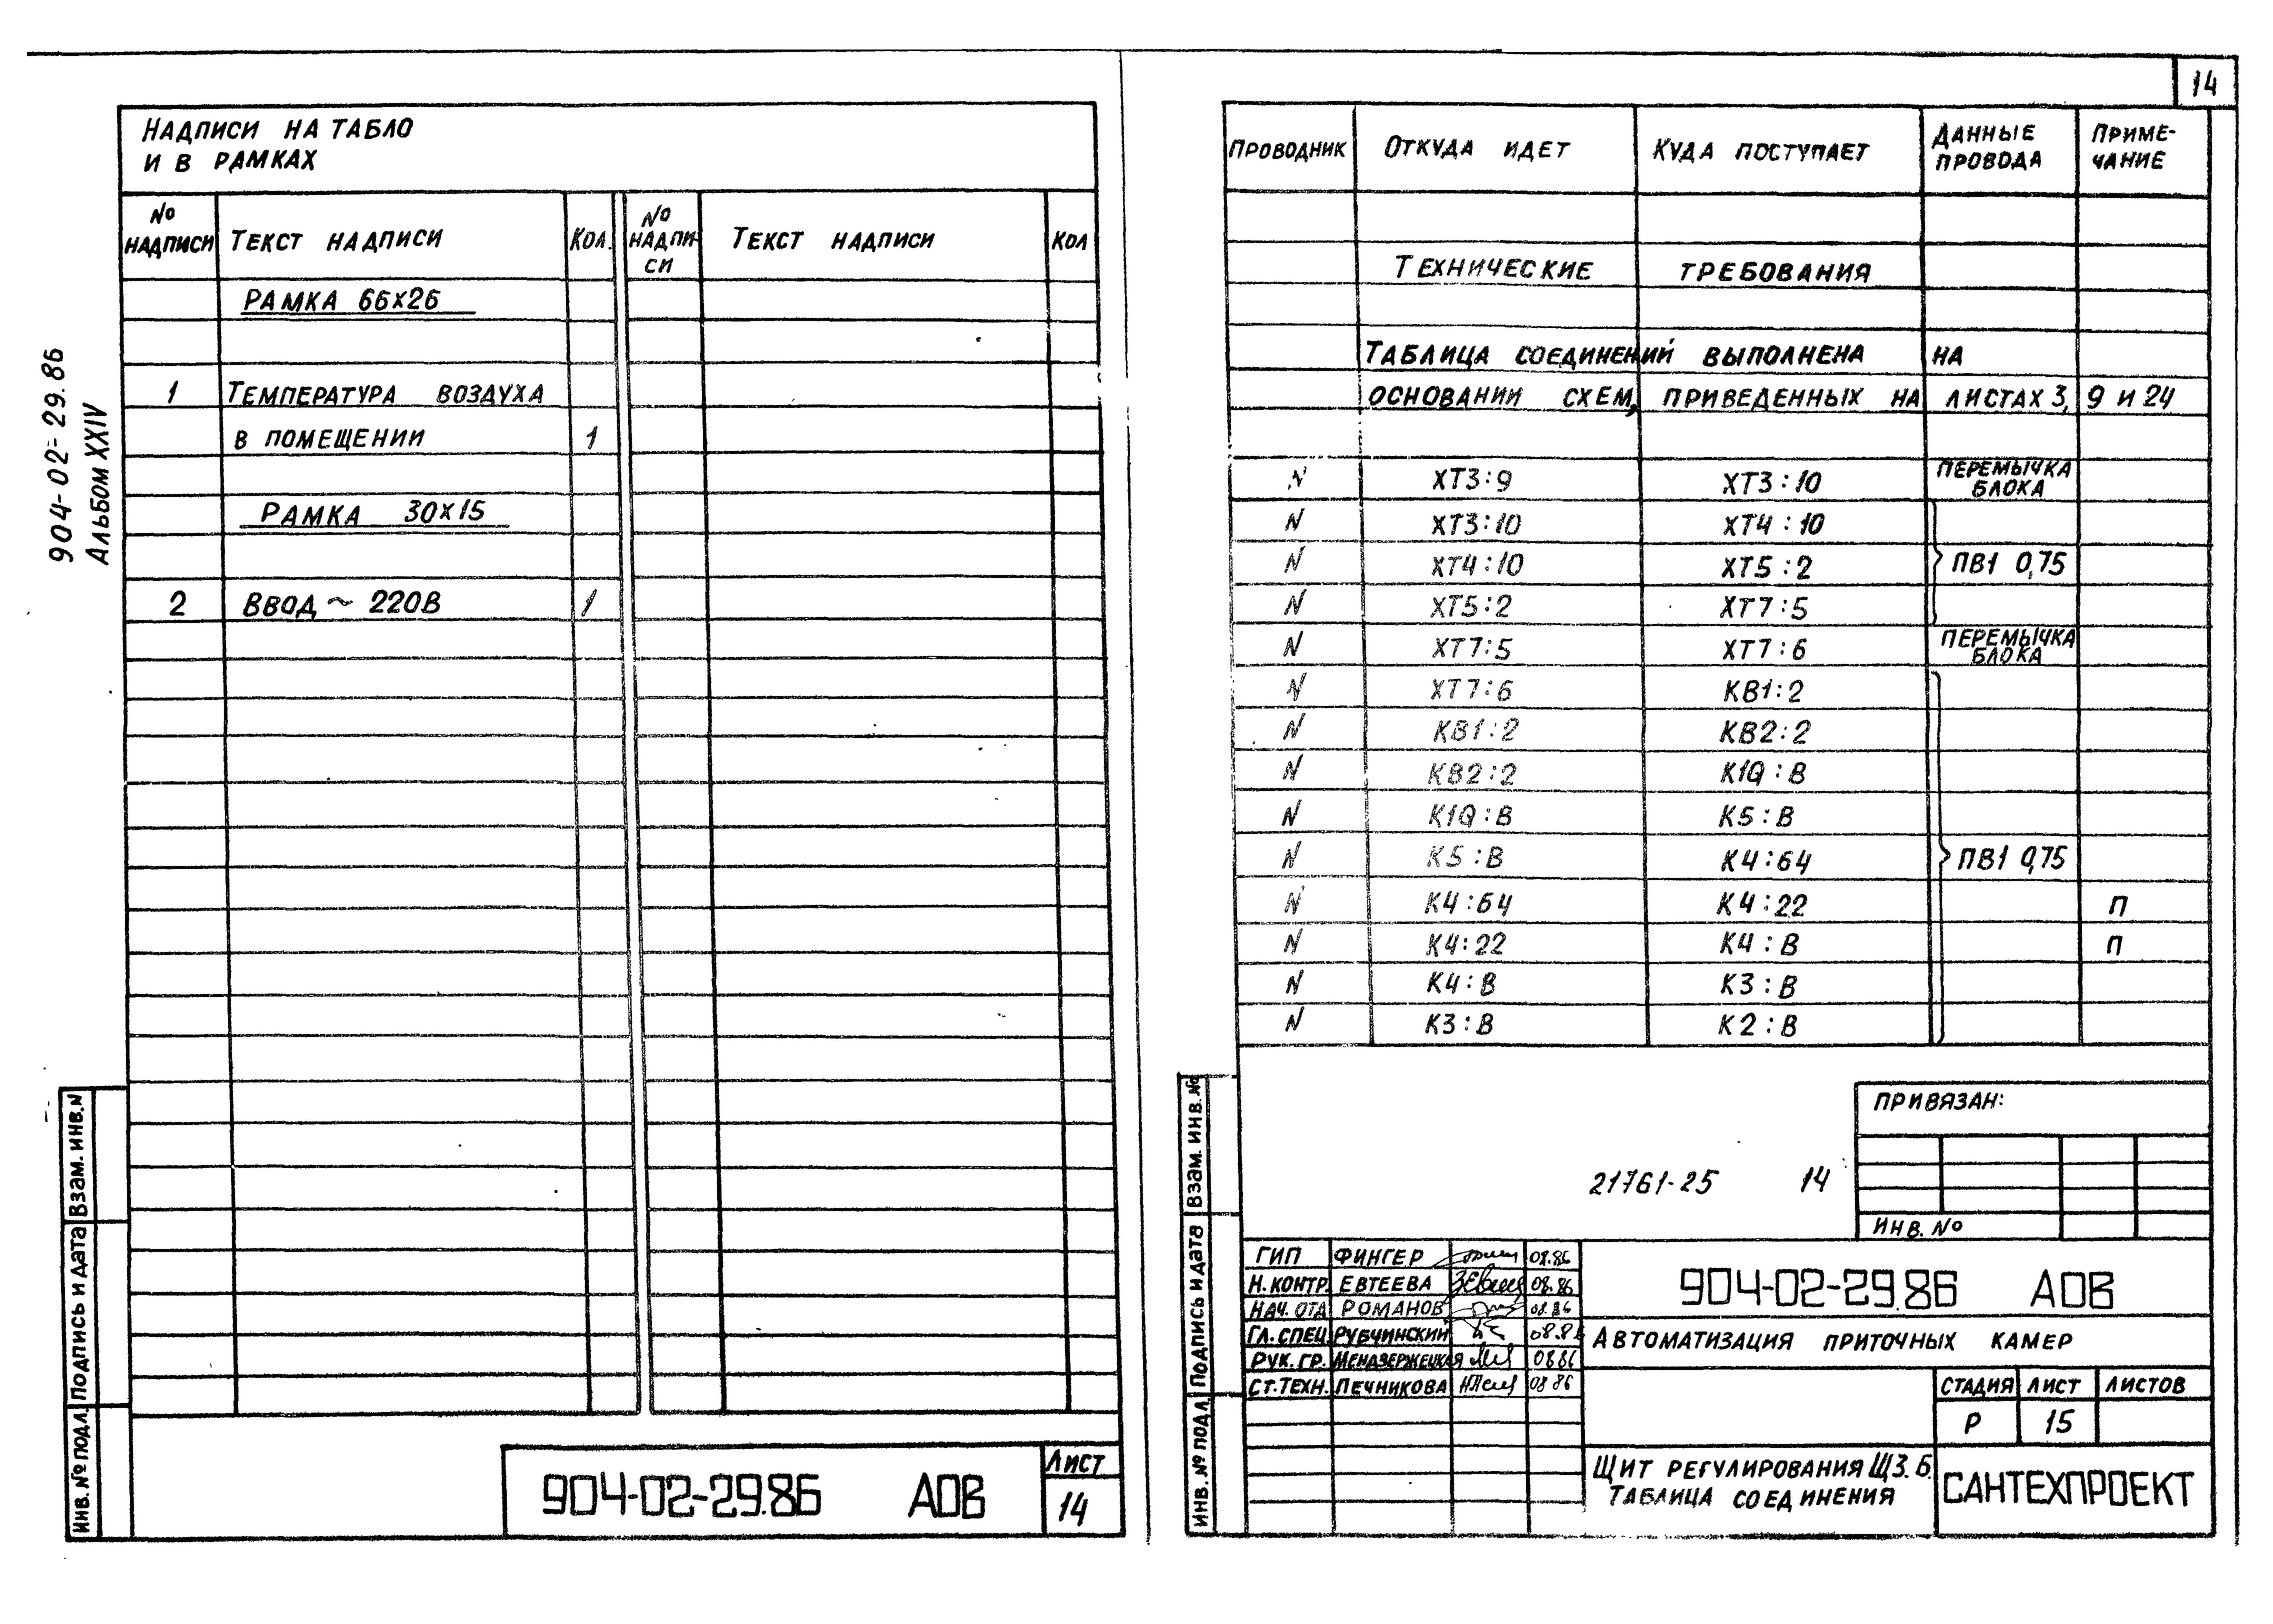 14
904-02-29.86
Альбом XXIV
Надписи на табло
и в рамках
№ надписи Текст надписи Кол. № надпи-си Текст надписи Кол
Рамка 66х26
1 Температура воздуха
в помещении 1
Рамка 30х15
2 Ввод ~ 220В 1
Взам. инв. N
Подпись и дата
Инв. № подл.
904-02-29.86 АОВ
Лист
14
Проводник Откуда идет Куда поступает Данные провода Приме-чание
Технические требования
Таблица соединений выполнена на
основании схем, приведенных на листах 3, 9 и 24
N ХТ3:9 ХТ3:10 перемычка блока
N ХТ3:10 ХТ4:10
N ХТ4:10 ХТ5:2 ПВ1 0,75
N ХТ5:2 ХТ7:5
N ХТ7:5 ХТ7:6 перемычка блока
N ХТ7:6 КВ1:2
N КВ1:2 КВ2:2
N КВ2:2 К1Q:В
N К1Q:В К5:В
N К5:В К4:64 ПВ1 0,75
N К4:64 К4:22 п
N К4:22 К4:В п
N К4:В К3:В
N К3:В К2:В
Привязан:
Инв. №
21761-25 14
Взам. инв. №
Подпись и дата
Инв. № подл
ГИП Фингер 08.86
Н. контр. Евтеева 08.86
Нач. отд Романов 08.86
Гл. спец. Рубчинский 08.8
Рук. гр. Мендзержецкая 08 86
Ст. техн. Печникова 08 86
904-02-29.86 АОВ
Автоматизация приточных камер
Стадия Лист Листов
Р 15
Щит регулирования Щ3.6.
Таблица соединения
САНТЕХПРОЕКТ